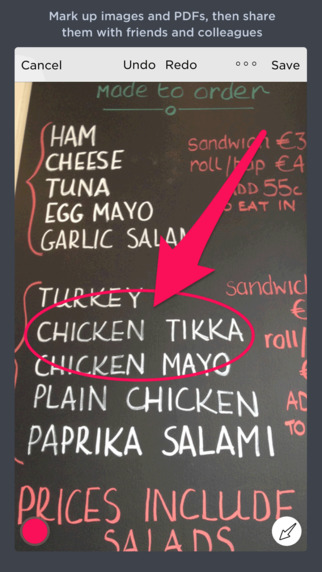 Mark up images and PDFs, then share
them with friends and colleagues
Cancel Undo Redo Save
Made to order
HAM
CHEESE
TUNA
EGG MAYO
GARLIC SALAM
sandwich €3
roll/ €4
ADD 55c
EAT IN
TURKEY
CHICKEN TIKKA
CHICKEN MAYO
PLAIN CHICKEN
PAPRIKA SALAMI
sandwich
€
roll/
AD
TO
PRICES INCLUDE
SALADS